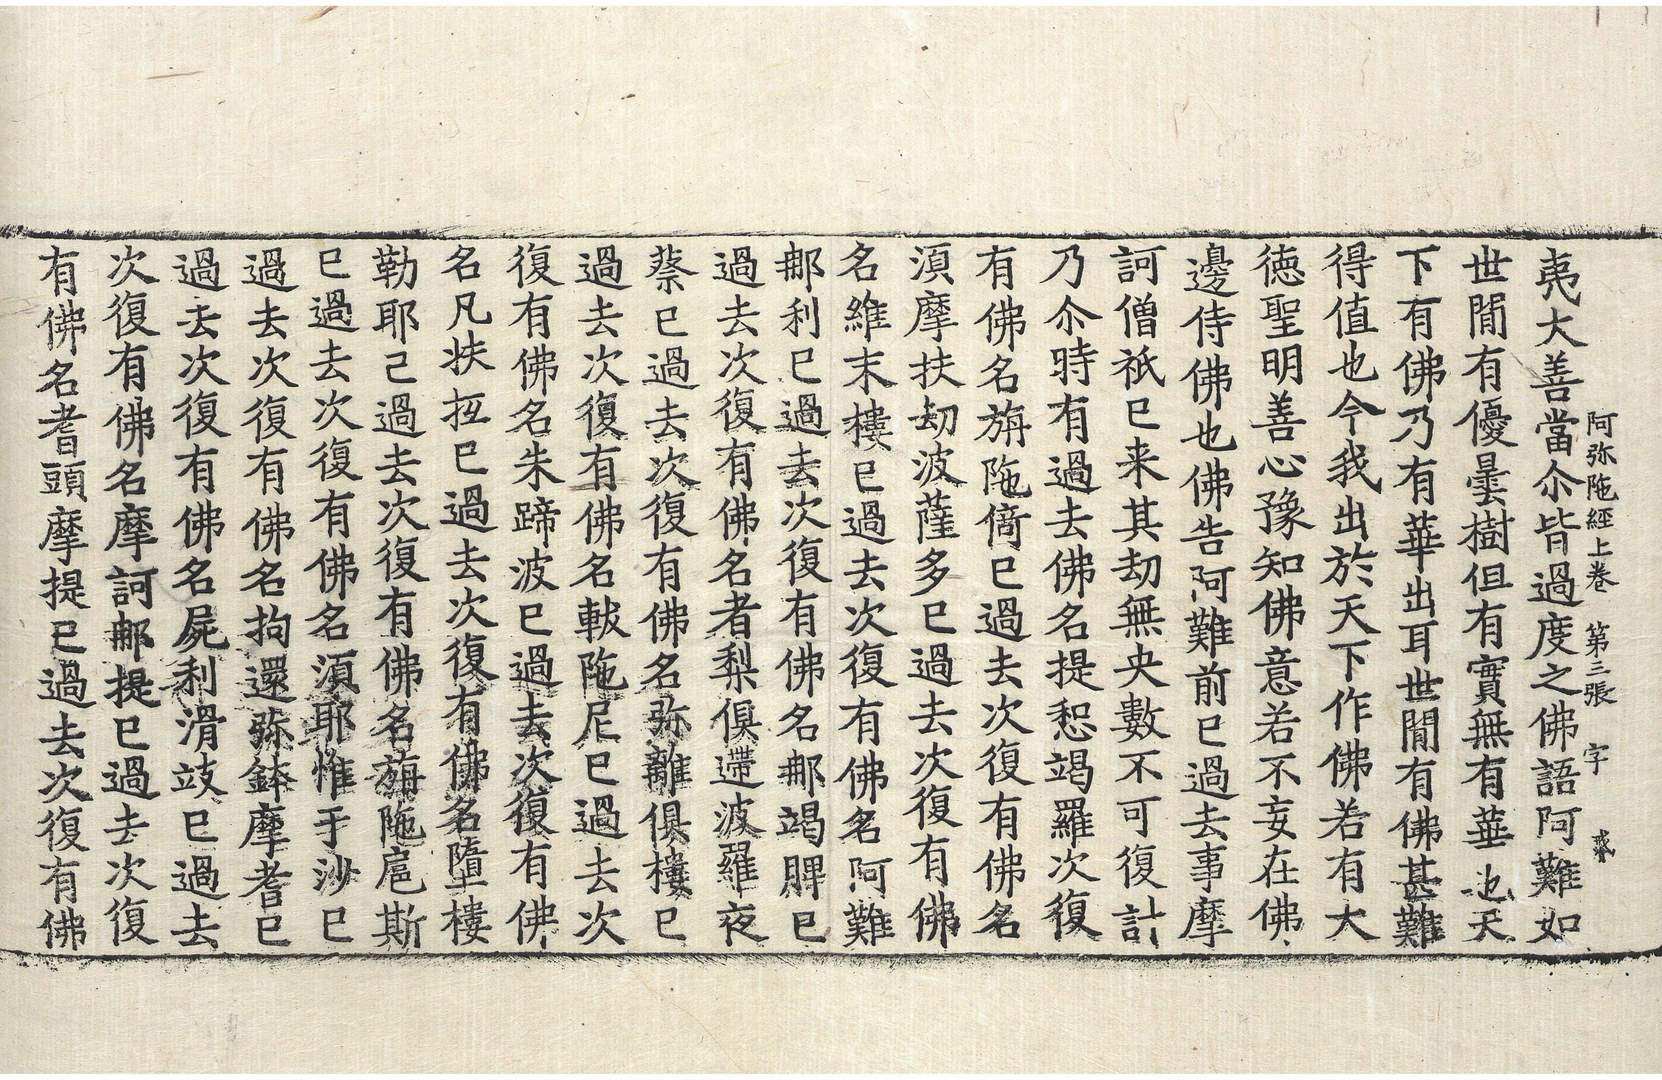 阿弥陁經上卷 第三張 字
夷大善當尒皆過度之佛語阿難如
世閒有優曇樹但有實無有華也天
下有佛乃有華出耳世閒有佛甚難
得值也今我出於天下作佛若有大
德聖明善心豫知佛意若不妄在佛
邊侍佛也佛告阿難前巳過去事摩
訶僧祇巳来其劫無央數不可復計
乃尒時有過去佛名提惒竭羅次復
有佛名旃陁倚巳過去次復有佛名
須摩扶劫波薩多巳過去次復有佛
名維末樓巳過去次復有佛名阿難
那利巳過去次復有佛名那竭脾巳
過去次復有佛名者梨俱遰波羅夜
蔡巳過去次復有佛名弥離俱樓巳
過去次復有佛名軷陁尼巳過去次
復有佛名朱蹄波巳過去次復有佛
名凡扶坘巳過去次復有佛名墮樓
勒耶己過去次復有佛名旃陁扈斯
巳過去次復有佛名須耶惟于沙巳
過去次復有佛名拘還弥鉢摩耆巳
過去次復有佛名屍利滑攱巳過去
次復有佛名摩訶那提巳過去次復
有佛名耆頭摩提巳過去次復有佛